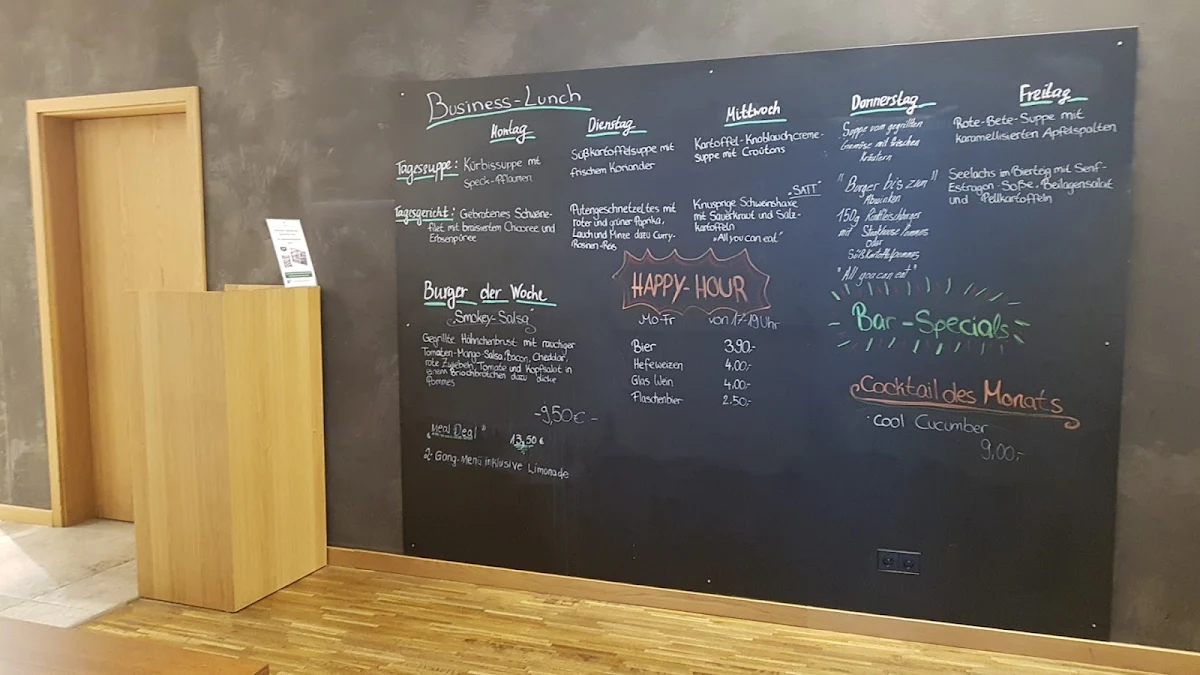 Business-Lunch
Montag
Tagessuppe: Kürbissuppe mit
Speck-Pflaumen
Tagesgericht: Gebratenes Schweine-
filet mit braisiertem Chicoree und
Erbsenpüree
Dienstag
Süßkartoffelsuppe mit
frischem Koriander
Putengeschnetzeltes mit
roter und grüner Paprika,
Lauch und Minze dazu Curry-
Rosinen-Reis
Mittwoch
Kartoffel-Knoblauchcreme-
suppe mit Croûtons
"SATT"
Knusprige Schweinshaxe
mit Sauerkraut und Salz-
kartoffeln
"All you can eat"
Donnerstag
Suppe vom gegrillten
Gemüse mit frischen
Kräutern
"Burger bis zum"
Abwinken
150g Rindfleischburger
mit Steakhouse Pommes
oder
Süßkartoffelpommes
"All you can eat"
Freitag
Rote-Bete-Suppe mit
karamellisierten Apfelspalten
Seelachs im Bierteig mit Senf-
Estragon-Soße, Beilagensalat
und Pellkartoffeln
Burger der Woche
"Smokey-Salsa"
Gegrillte Hähnchenbrust mit rauchiger
Tomaten-Mango-Salsa, Bacon, Cheddar,
rote Zwiebeln, Tomate und Kopfsalat in
einem Briochbrötchen dazu dicke
Pommes
-9,50€-
"Meal Deal"
13,50 €
2-Gang-Menü inklusive Limonade
HAPPY-HOUR
Mo-Fr von 17-19 Uhr
Bier 3.90.-
Hefeweizen 4,00.-
Glas Wein 4,00.-
Flaschenbier 2.50,-
Bar-Specials
Cocktail des Monats
· Cool Cucumber
9,00.-